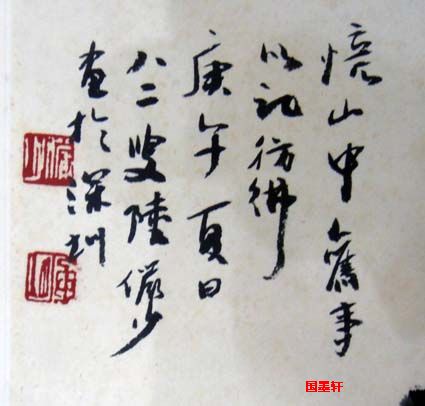 憶山中舊事
以記彷彿
庚午夏日
八二叟陸儼少
畫於深圳
国墨轩